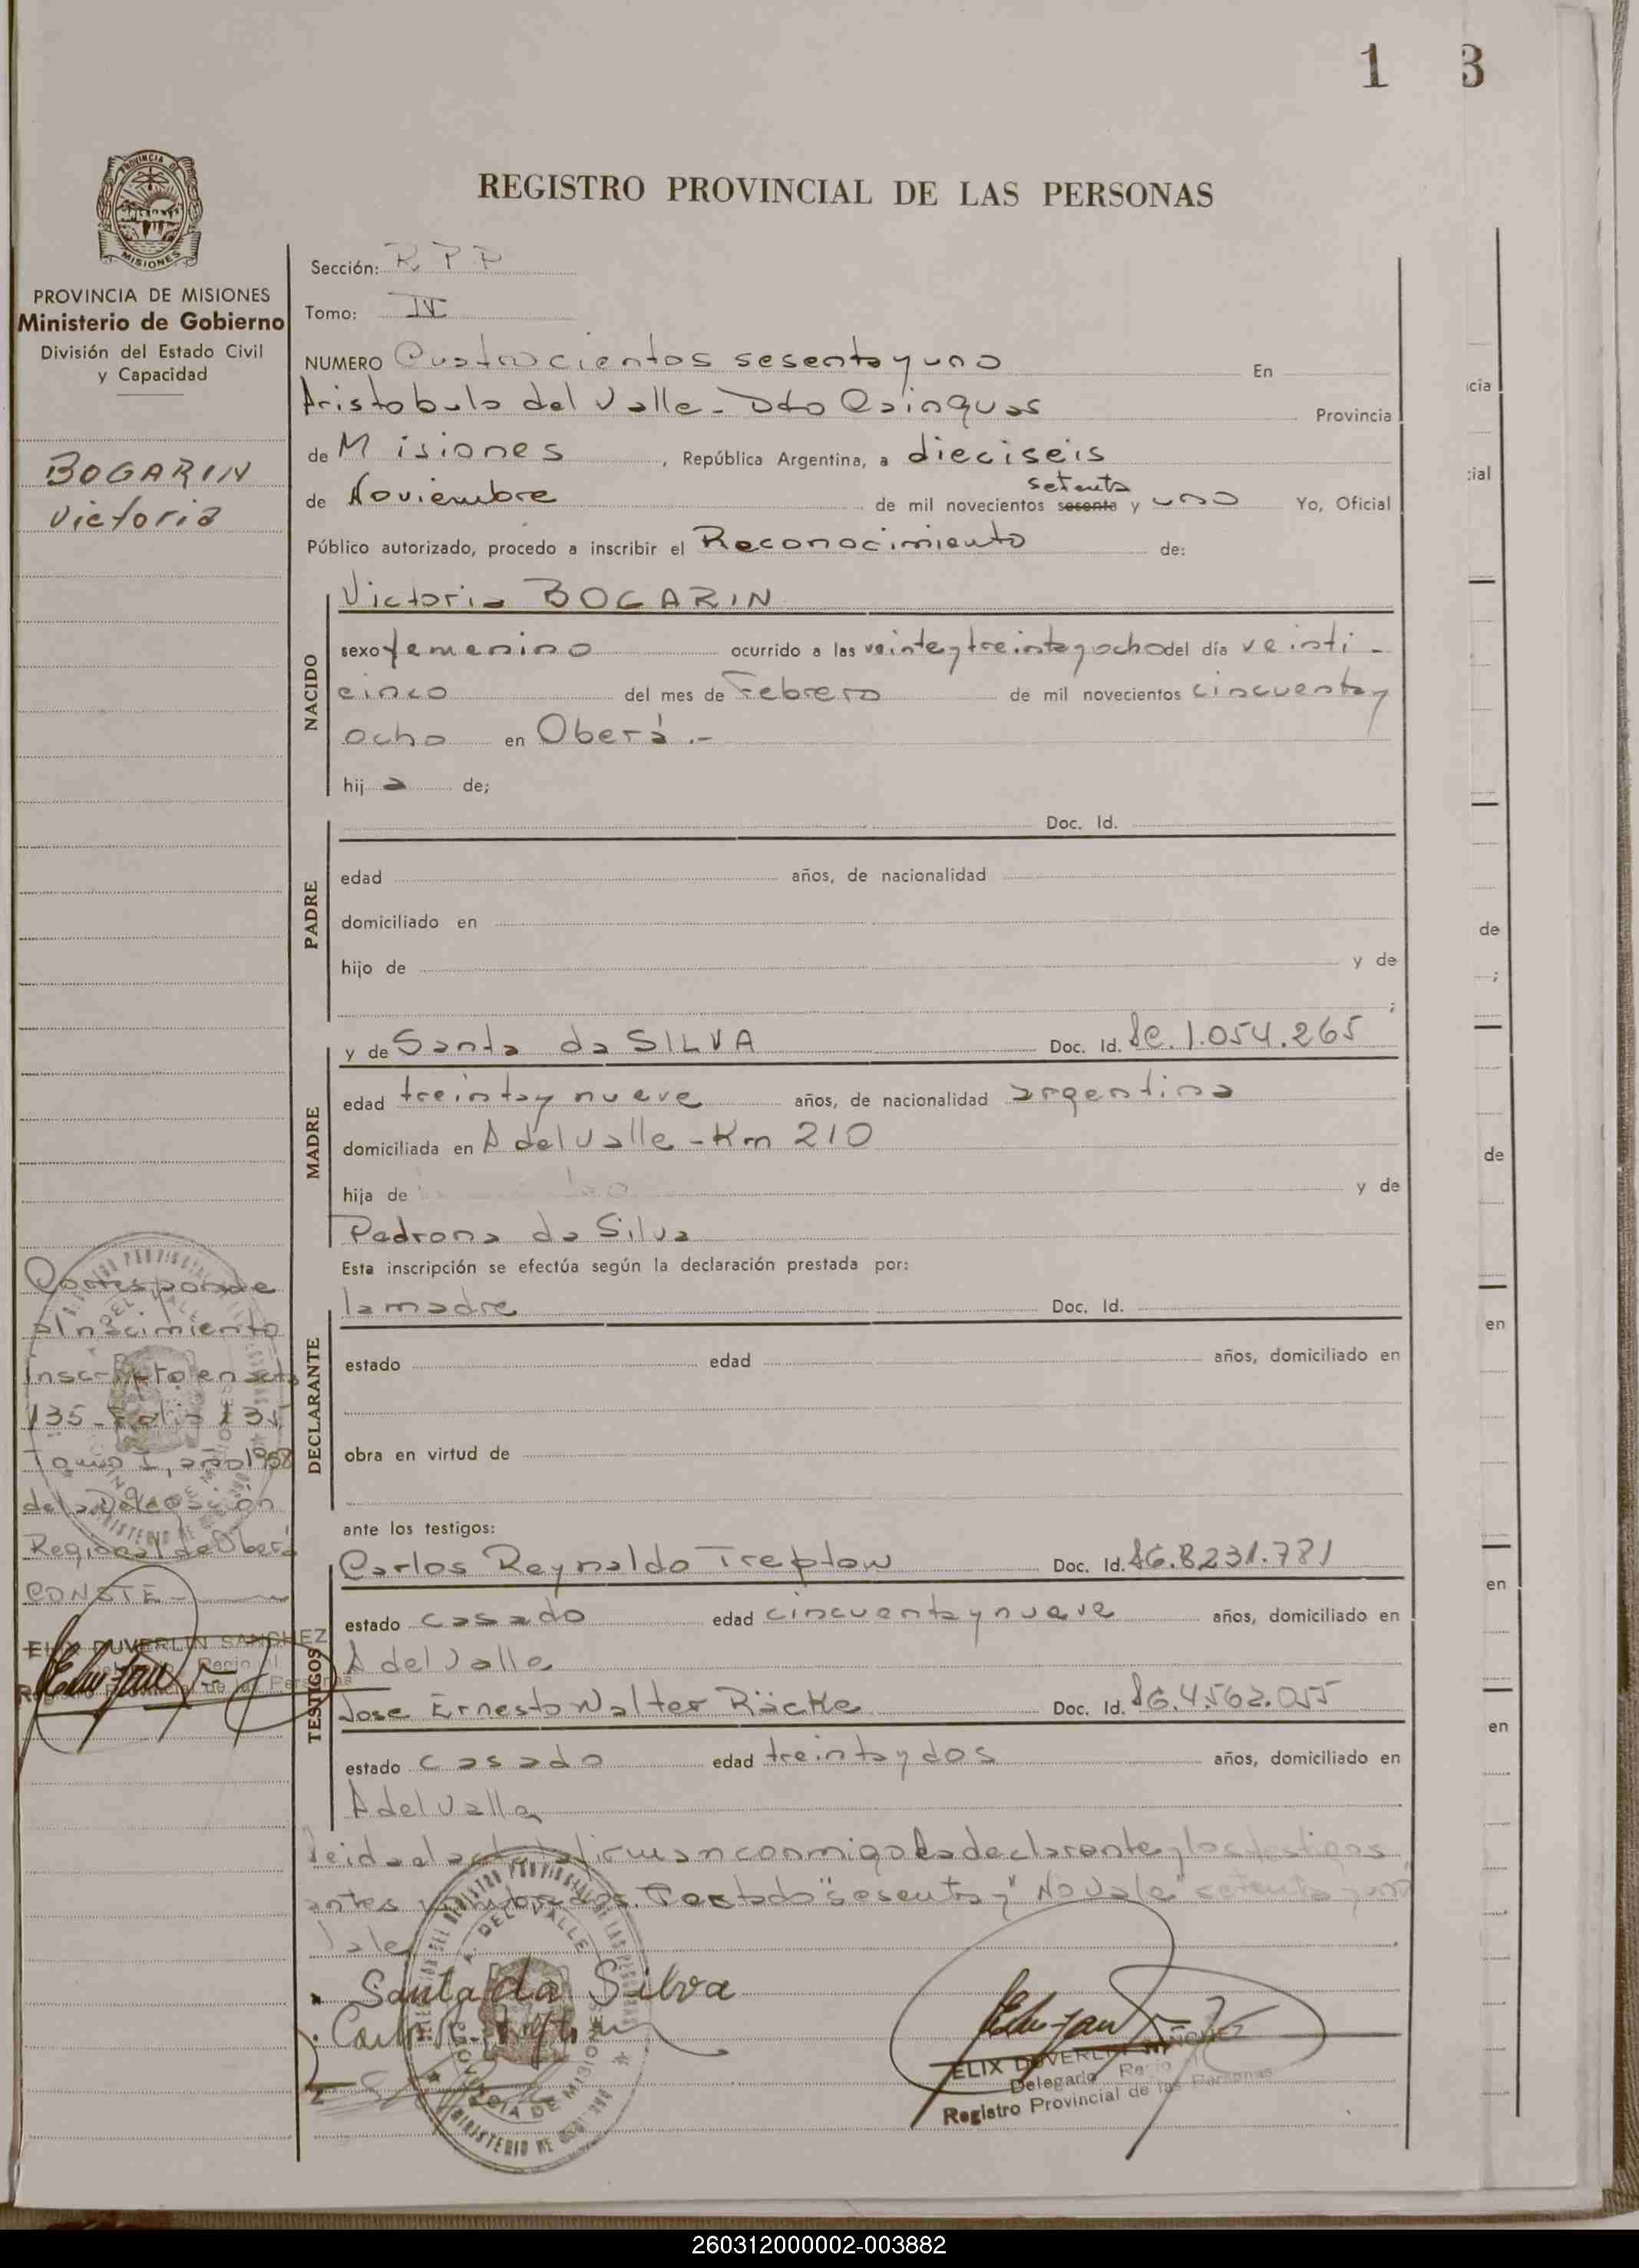 1 3
REGISTRO PROVINCIAL DE LAS PERSONAS
PROVINCIA DE MISIONES
Ministerio de Gobierno
División del Estado Civil
y Capacidad
BOGARIN
Victoria
Sección: R. P P
Tomo: IV
NUMERO Cuatrocientos sesenta y uno En
Aristobulo del Valle - Dto Cainguas Provincia
de Misiones, República Argentina, a dieciseis
setenta
de Noviembre de mil novecientos sesenta y uno Yo, Oficial
Público autorizado, procedo a inscribir el Reconocimiento de:
NACIDO
Victoria BOGARIN
sexo femenino ocurrido a las veinte y treinta y ocho del día veinti-
cinco del mes de Febrero de mil novecientos cincuenta y
ocho en Oberá.-
hija de;
PADRE
Doc. Id.
edad años, de nacionalidad
domiciliado en
hijo de y de
;
MADRE
y de Santa da SILVA Doc. Id. 1.054.265
edad treinta y nueve años, de nacionalidad argentina
domiciliada en A del Valle - Km 210
hija de y de
Pedrona da Silva
Esta inscripción se efectúa según la declaración prestada por:
DECLARANTE
la madre Doc. Id.
estado edad años, domiciliado en
obra en virtud de
ante los testigos:
TESTIGOS
Carlos Reynaldo Treptow Doc. Id. 8231.781
estado casado edad cincuenta y nueve años, domiciliado en
A del Valle
Jose Ernesto Walter Räcke Doc. Id. 4.562.055
estado casado edad treinta y dos años, domiciliado en
A del Valle
Leida el acta la firman conmigo la declarante y los testigos
antes nombrados. Testado "sesenta y" No vale "setenta y uno"
Vale
Santa da Silva
ELIX DUVERLIN SANCHEZ
Delegado
Registro Provincial de las Personas
Corresponde
al nacimiento
Inscripto en acta
135 - Folio 135
Tomo I, año 1958
de la Delegación
Regional de Oberá
CONSTE
ELIX DUVERLIN SANCHEZ
Registro Provincial de las Personas
A. DEL VALLE
PROVINCIA DE MISIONES
cia
cial
de
;
de
en
en
en
260312000002-003882